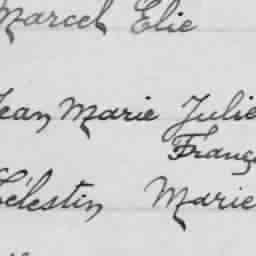 Marcel Elie
Jean Marie Julie
Franç
Célestin Marie